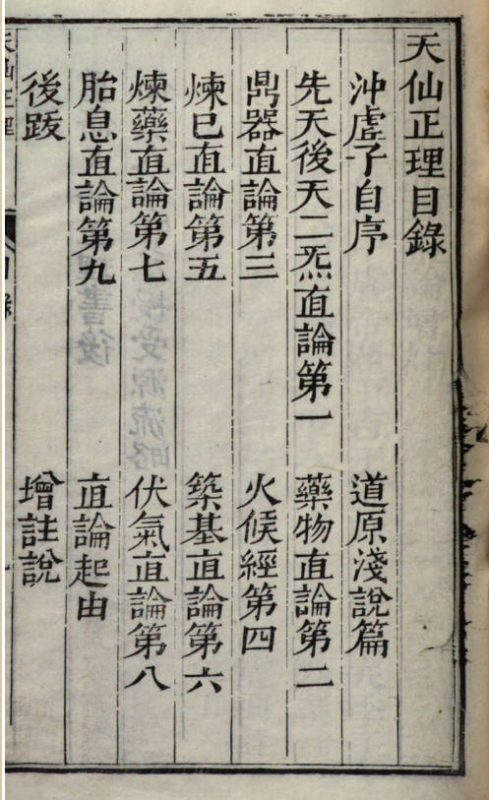 天仙正理目錄
沖虛子自序　道原淺說篇
先天後天二炁直論第一　藥物直論第二
鼎器直論第三　火候經第四
煉已直論第五　築基直論第六
煉藥直論第七　伏氣直論第八
胎息直論第九　直論起由
後跋　增註說
天仙正理